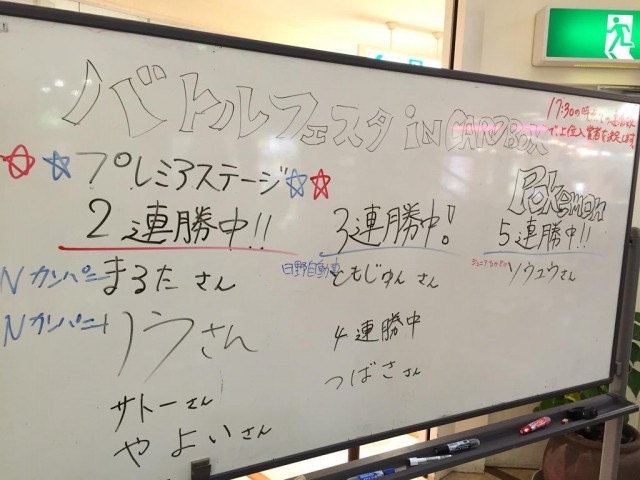 バトルフェスタ in CARDBOX
17:30の時点
で上位入賞者を決定します
プレミアステージ
Pokemon
2連勝中!!
Nカンパニー まるたさん
Nカンパニー ノウさん
サトーさん
やよいさん
3連勝中!
日野自動車 ともじゅんさん
4連勝中
つばささん
5連勝中!!
ソウュウさん